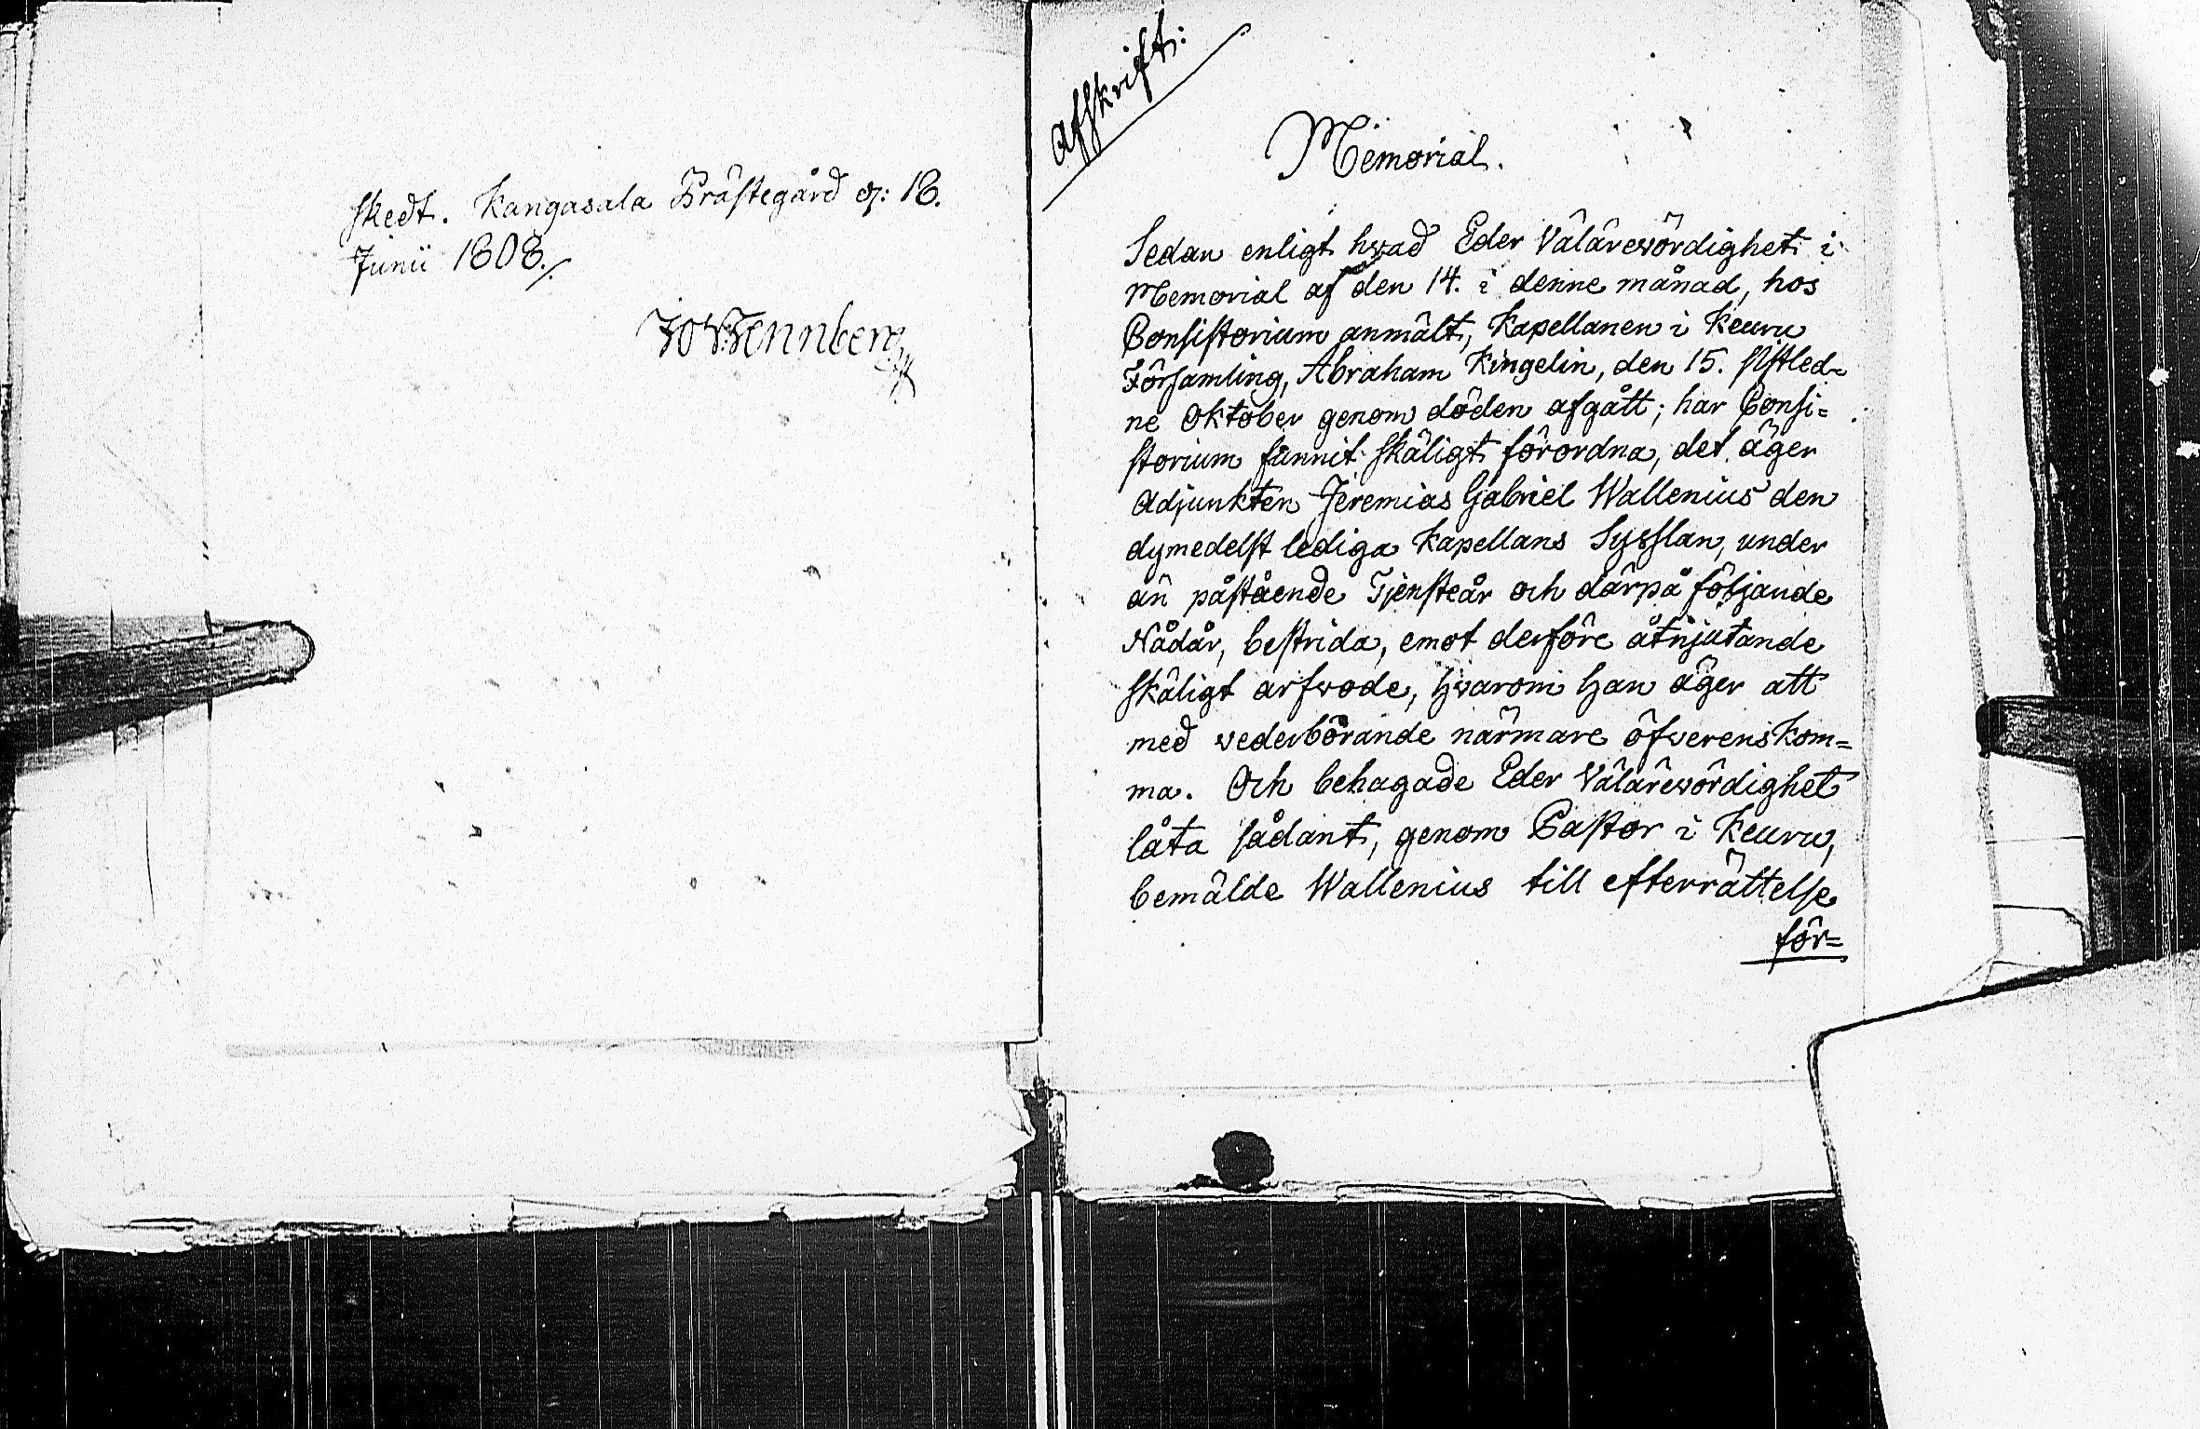 skedt. Kangasala Prästegård d: 18.
Junii 1808./.
Afskrift:
Memorial.
Sedan enligt hvad Eder Välärevördighet i
Memorial af den 14. i denne månad, hos
Consistorium anmält, Kapellanen i Keuru
Församling, Abraham Kingelin, den 15. sistled-
ne Oktober genom döden afgått; har Consi=
storium funnit skäligt förordna, det äger
Adjunkten Jeremias Gabriel Wallenius den
dymedelst lediga Kapellans Sysslan, under
än påstående Tjensteår och därpå följande
Nådår, bestrida, emot derföre åtnjutande
skäligt arfvode, hvarom han äger att
med vederbörande närmare öfverenskom=
ma. Och behagade Eder Välärevördighet
låta sådant, genom Pastor i Keuru,
bemälde Wallenius till efterrättelse
för=